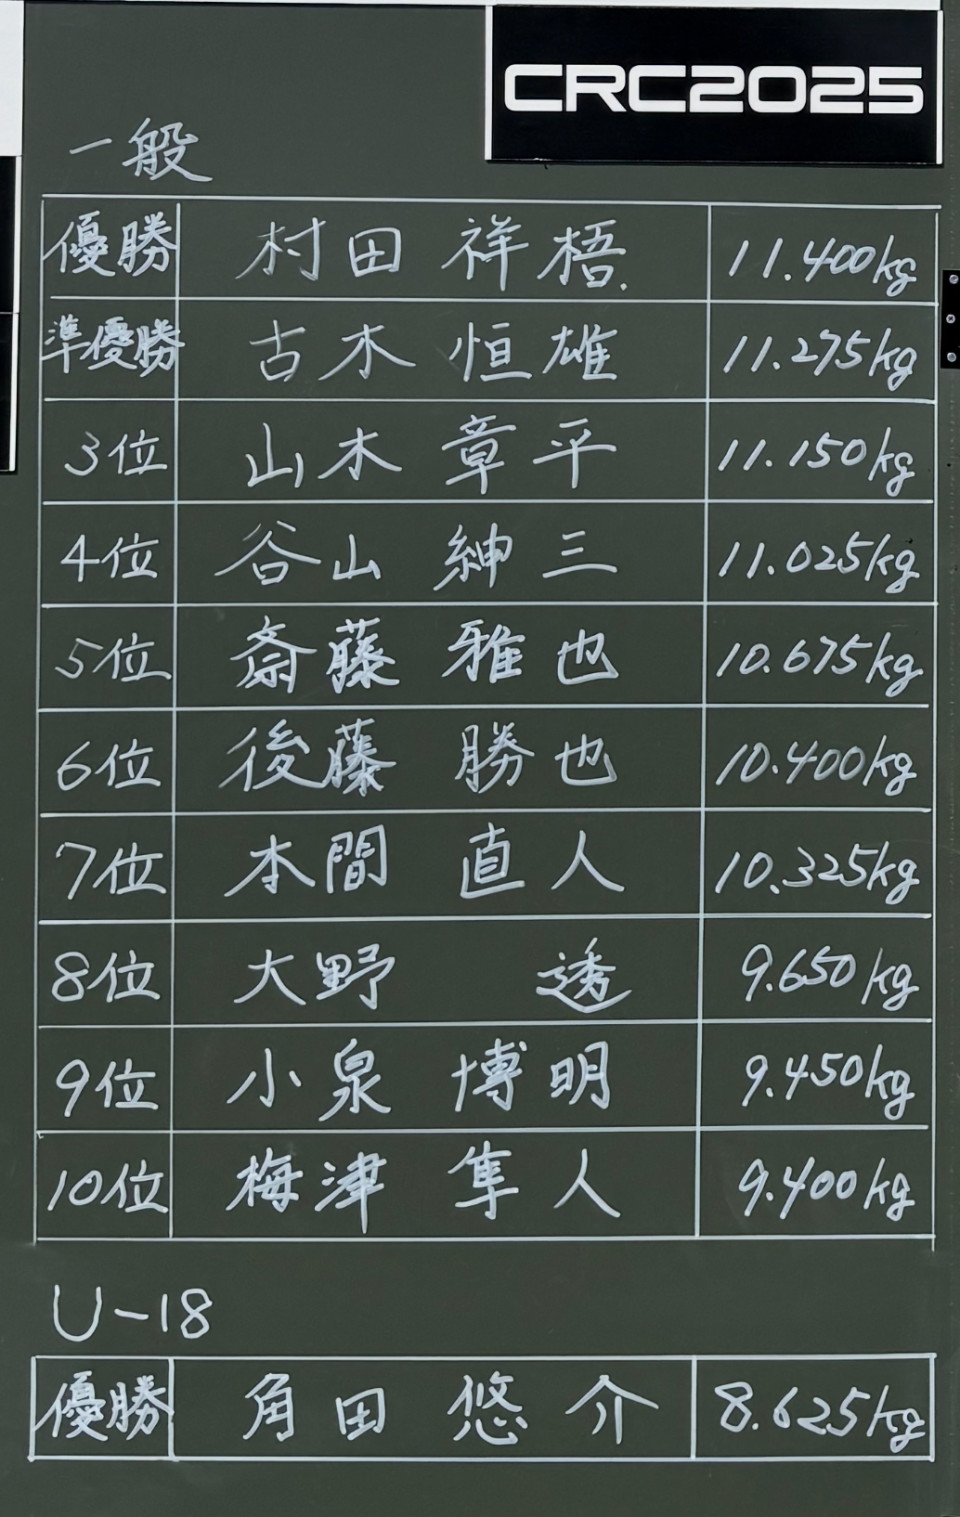 CRC2025
一般
優勝 村田 祥梧 11.400kg
準優勝 古木 恒雄 11.275kg
3位 山木 章平 11.150kg
4位 谷山 紳三 11.025kg
5位 斎藤 雅也 10.675kg
6位 後藤 勝也 10.400kg
7位 本間 直人 10.325kg
8位 大野 透 9.650kg
9位 小泉 博明 9.450kg
10位 梅津 隼人 9.400kg
U-18
優勝 角田 悠介 8.625kg